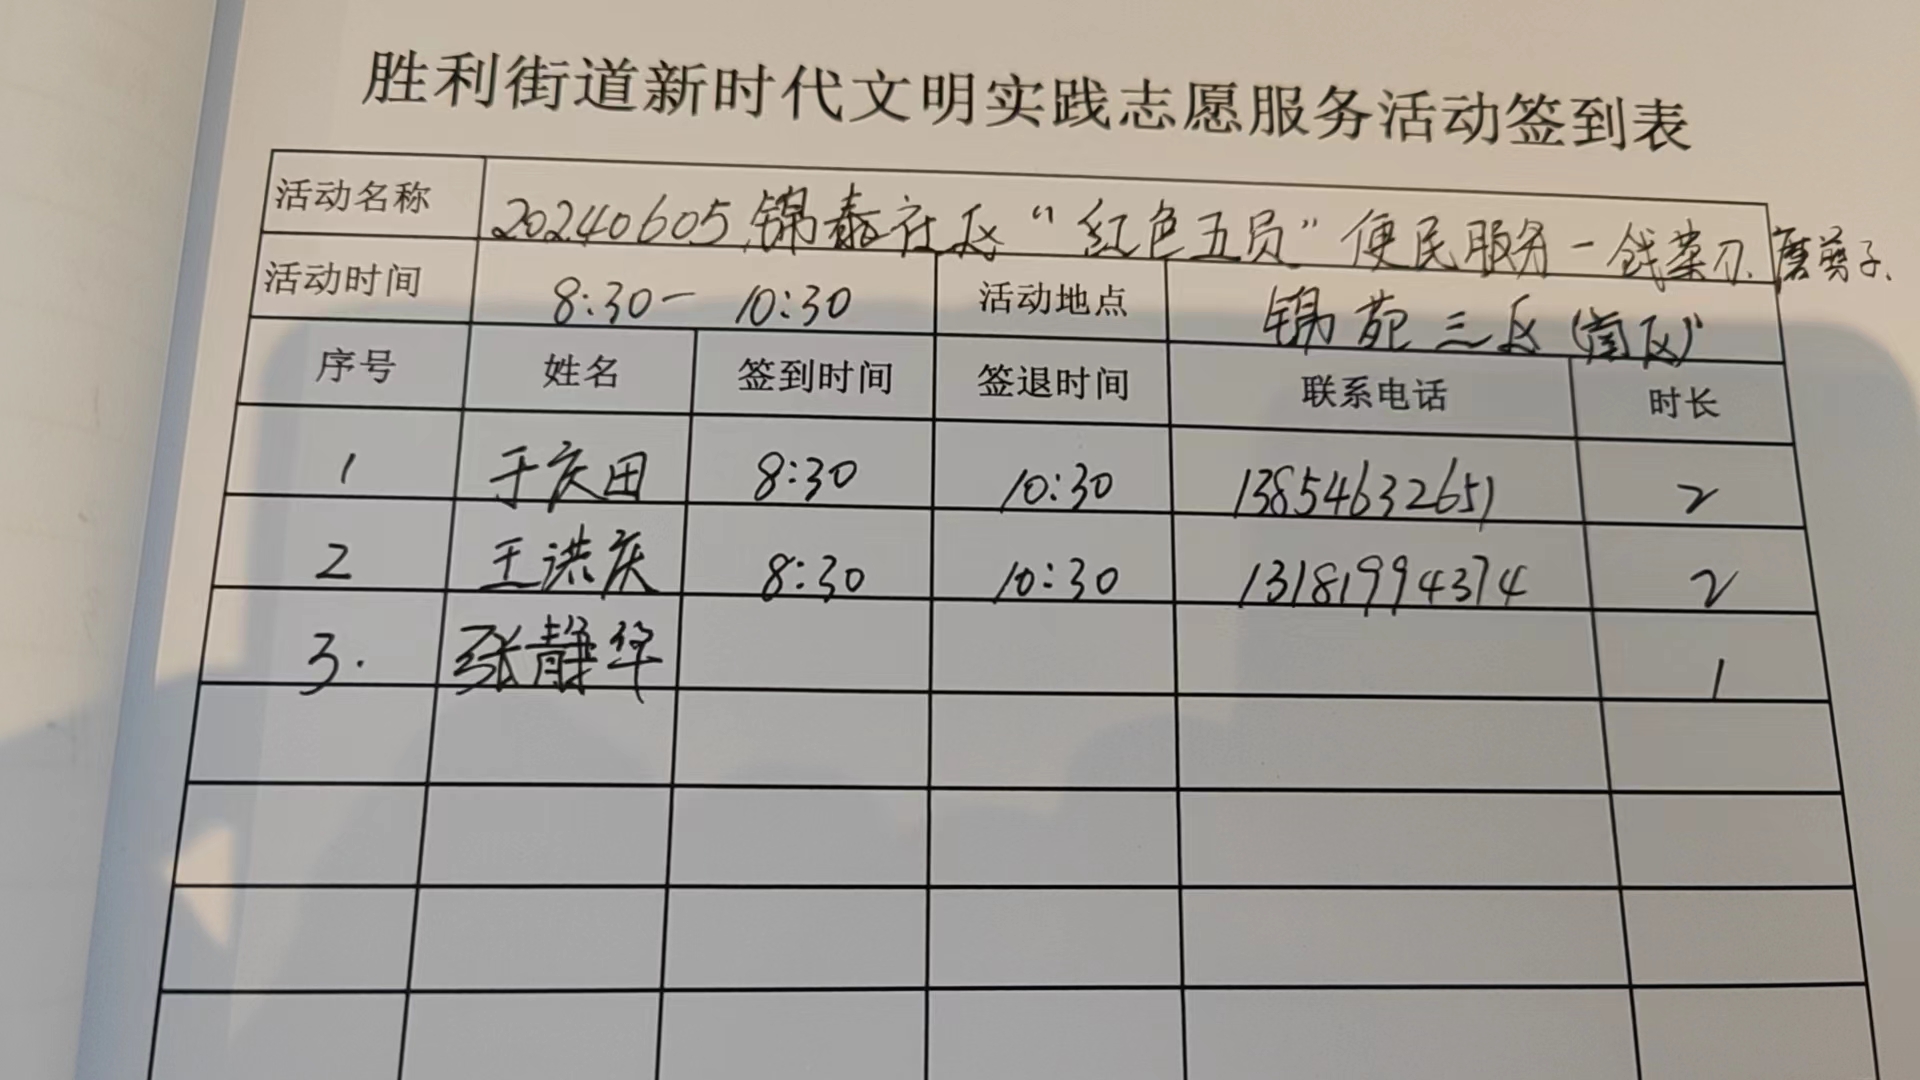 胜利街道新时代文明实践志愿服务活动签到表
活动名称 20240605.锦泰社区“红色五员”便民服务-戗菜刀、磨剪子、
活动时间 8:30- 10:30 活动地点 锦苑三区(南区)
序号 姓名 签到时间 签退时间 联系电话 时长
1 于庆田 8:30 10:30 13854632651 2
2 王洪庆 8:30 10:30 13181994374 2
3. 张静华 1